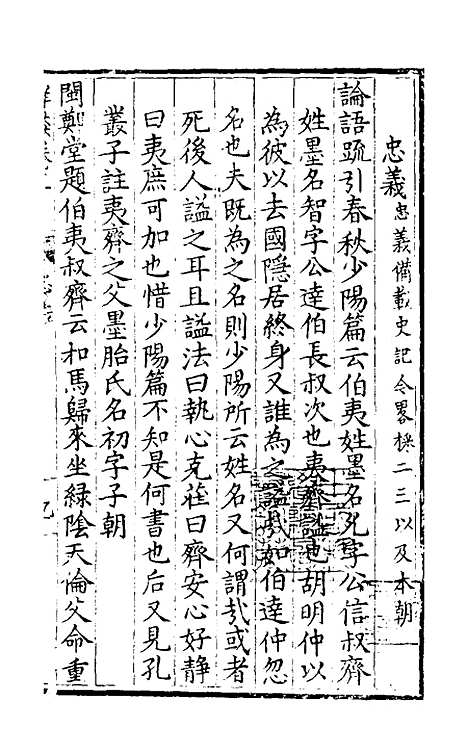 忠義忠義備載史記今畧採二三以及本朝
論語䟽引春秋少陽篇云伯夷姓墨名允字公信叔齊
姓墨名智字公達伯長叔次也夷齊謚也胡明仲以
為彼以去國隱居終身又誰為之謚哉如伯達仲忽
名也夫既為之名則少陽所云姓名又何謂哉或者
死後人謚之耳且謚法曰執心克莊曰齊安心好静
曰夷庶可加也惜少陽篇不知是何書也后又見孔
叢子註夷齊之父墨胎氏名初字子朝
閩鄭堂題伯夷叔齊云和馬歸來坐緑陰天倫父命重